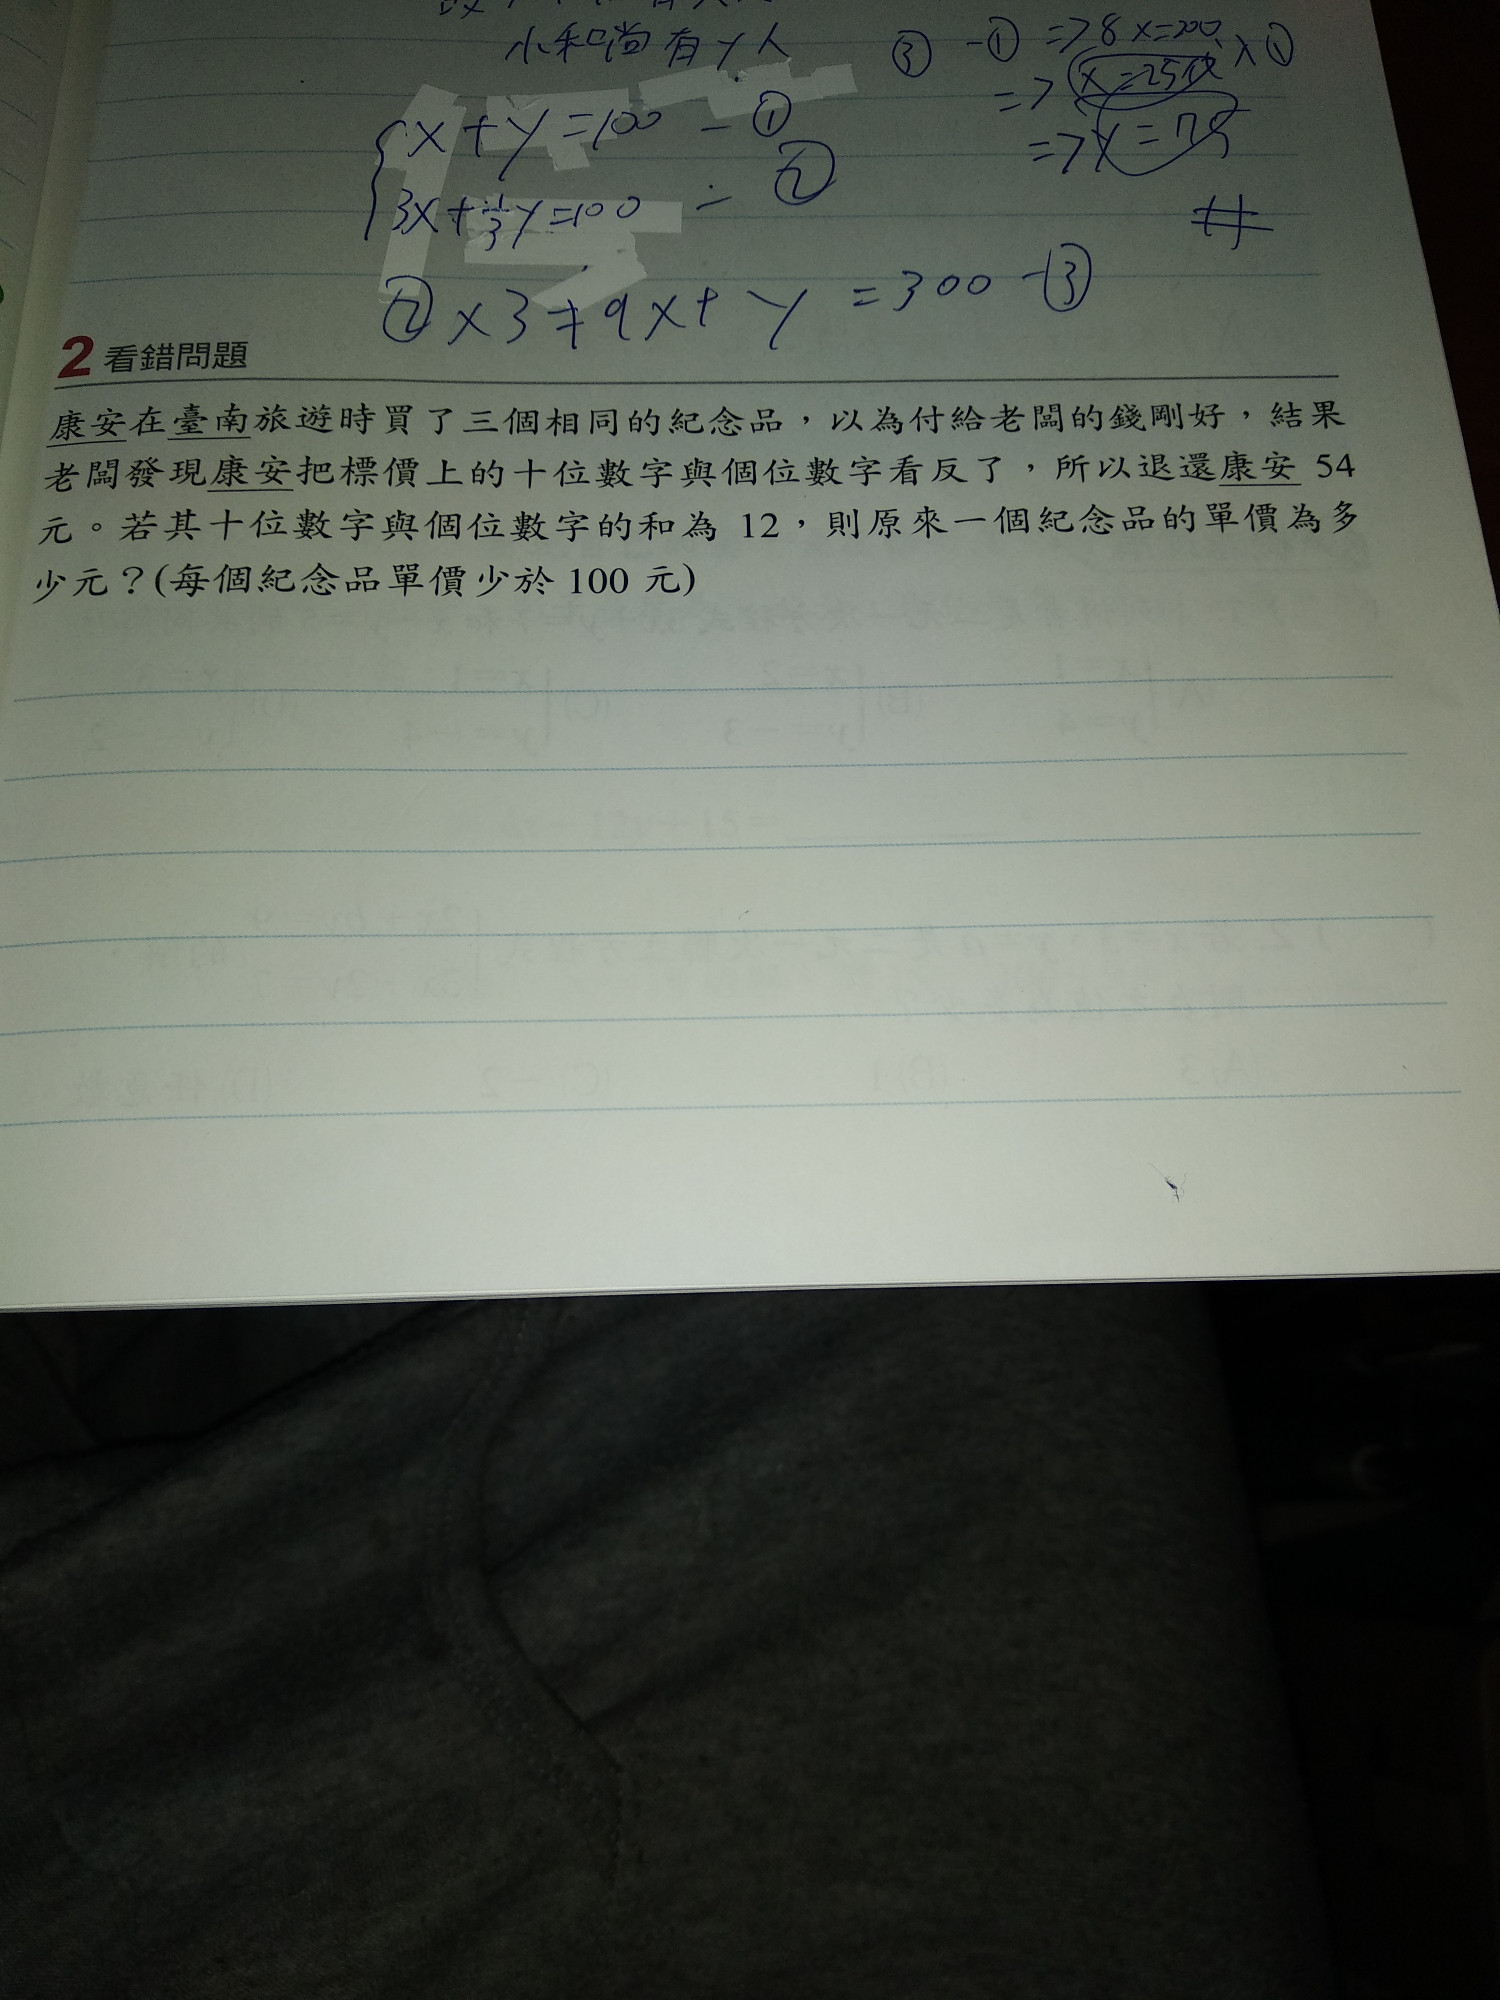 小和尚有y人
③-①=>8x=200
=>x=25代入①
=>y=75
{x+y=100-①
3x+1/3y=100-②
#
②×3=>9x+y=300-③
2 看錯問題
康安在臺南旅遊時買了三個相同的紀念品，以為付給老闆的錢剛好，結果
老闆發現康安把標價上的十位數字與個位數字看反了，所以退還康安 54
元。若其十位數字與個位數字的和為 12，則原來一個紀念品的單價為多
少元？(每個紀念品單價少於 100 元)